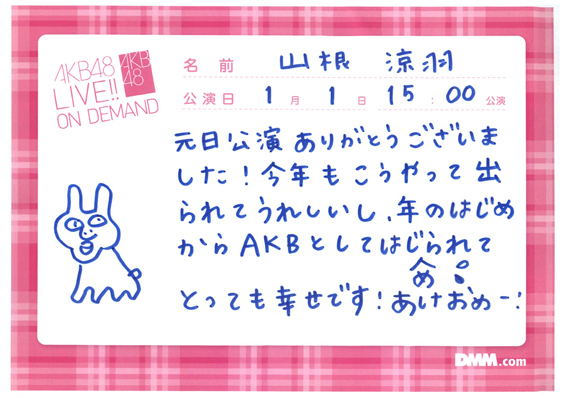 AKB48
LIVE!!
ON DEMAND
AKB
48
名前 山根 涼羽
公演日 1月1日 15:00公演
元日公演ありがとうございま
した!今年もこうやって出
られてうれしいし、年のはじめ
からAKBとしてはじられて
め
とっても幸せです!あけおめー!
DMM.com